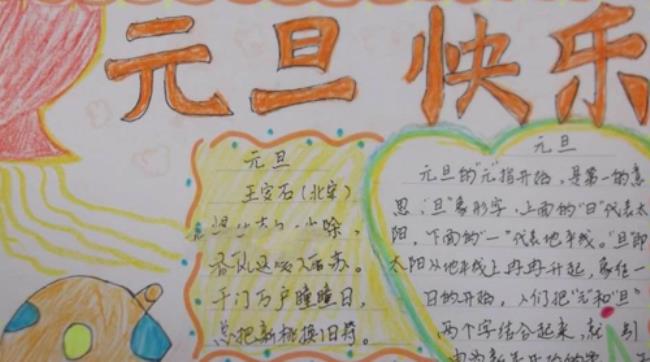 元旦快乐
元旦
王安石（北宋）
春风送暖入屠苏。
千门万户瞳瞳日，
总把新桃换旧符。
元旦
元旦的"元"指开始，是第一的意
思，"旦"象形字，上面的"日"代表太
阳，下面的"一"代表地平线。"旦"即
太阳从地平线上冉冉升起，象征一
日的开始，人们把"元"和"旦"
两个字结合起来，就 引